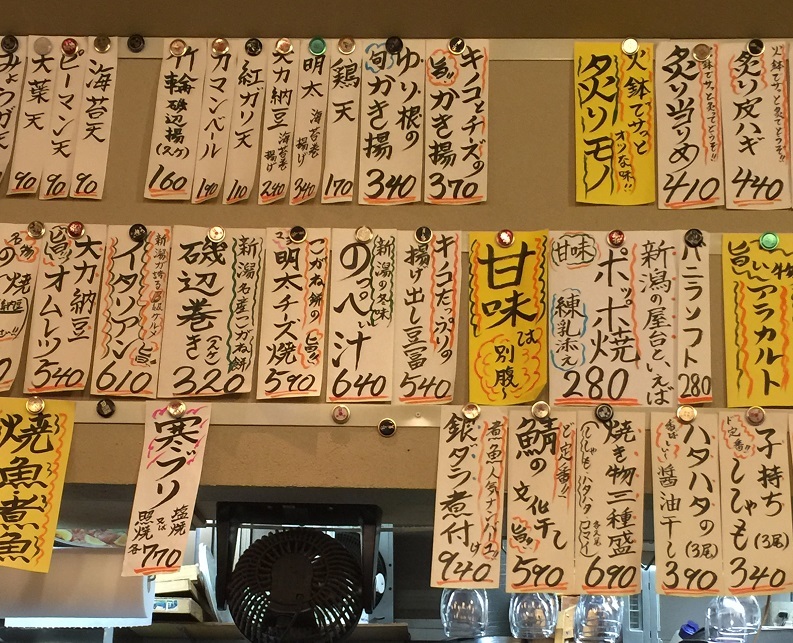 火鉢でサッと
オツな味!!
炙りモノ
炙り皮ハギ
440
炙り当りめ
410
キノコとチーズの
旨!!かき揚
370
ゆり根の
旬かき揚
340
鶏天
170
明太
海苔巻
揚げ
340
大力納豆
海苔巻
揚げ
240
紅ガリ天
110
カマンベール
190
竹輪磯辺揚
(2ケ)
160
海苔天
90
ピーマン天
90
大葉天
90
みょうが天
旨いアラカルト
バニラソフト
280
新潟の屋台といえば
ポッポ焼
甘味
練乳添え
280
甘味は
別腹
キノコたっぷりの
揚げ出し豆富
540
新潟の冬味
のっぺい汁
640
こがね餅の
明太チーズ焼
590
新潟名産こがね餅
磯辺巻き
(2ケ)
320
イタリアン
旨
610
大力納豆
旨!!オムレツ
540
子持ち
ど定番!!
ししゃも(3尾)
340
ハタハタの
(3尾)
醤油干し
390
焼き物三種盛
690
ど定番!!
鯖の文化干し
旨!!
590
銀ダラ煮付け
940
寒ブリ
塩焼
又は
照焼
各770
焼魚煮魚